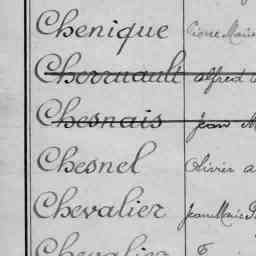 Chenique Pierre Marie
Cherruault alfred
Chesnais Jean M
Chesnel Olivier a
Chevalier Jean Marie P
Chevalier F